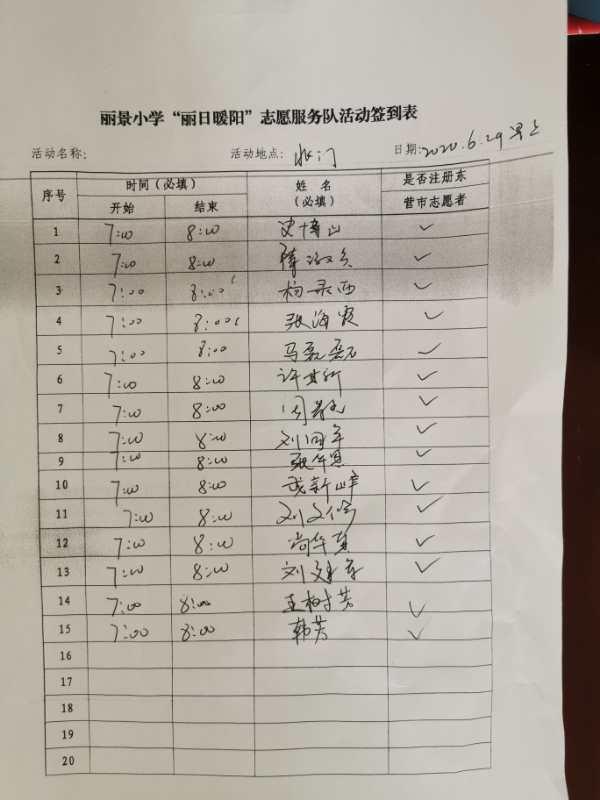 丽景小学“丽日暖阳”志愿服务队活动签到表
活动名称: 活动地点: 北门 日期: 2020.6.29 早上
序号 时间（必填） 姓名（必填） 是否注册东营市志愿者
开始 结束
1 7:00 8:00 ✓
2 7:00 8:00 ✓
3 7:00 8:00 ✓
4 7:00 8:00 张海霞 ✓
5 7:00 8:00 马磊磊 ✓
6 7:00 8:00 ✓
7 7:00 8:00 ✓
8 7:00 8:00 刘国军 ✓
9 7:00 8:00 ✓
10 7:00 8:00 ✓
11 7:00 8:00 ✓
12 7:00 8:00 ✓
13 7:00 8:00 ✓
14 7:00 8:00 王树芳 ✓
15 7:00 8:00 韩芳 ✓
16
17
18
19
20